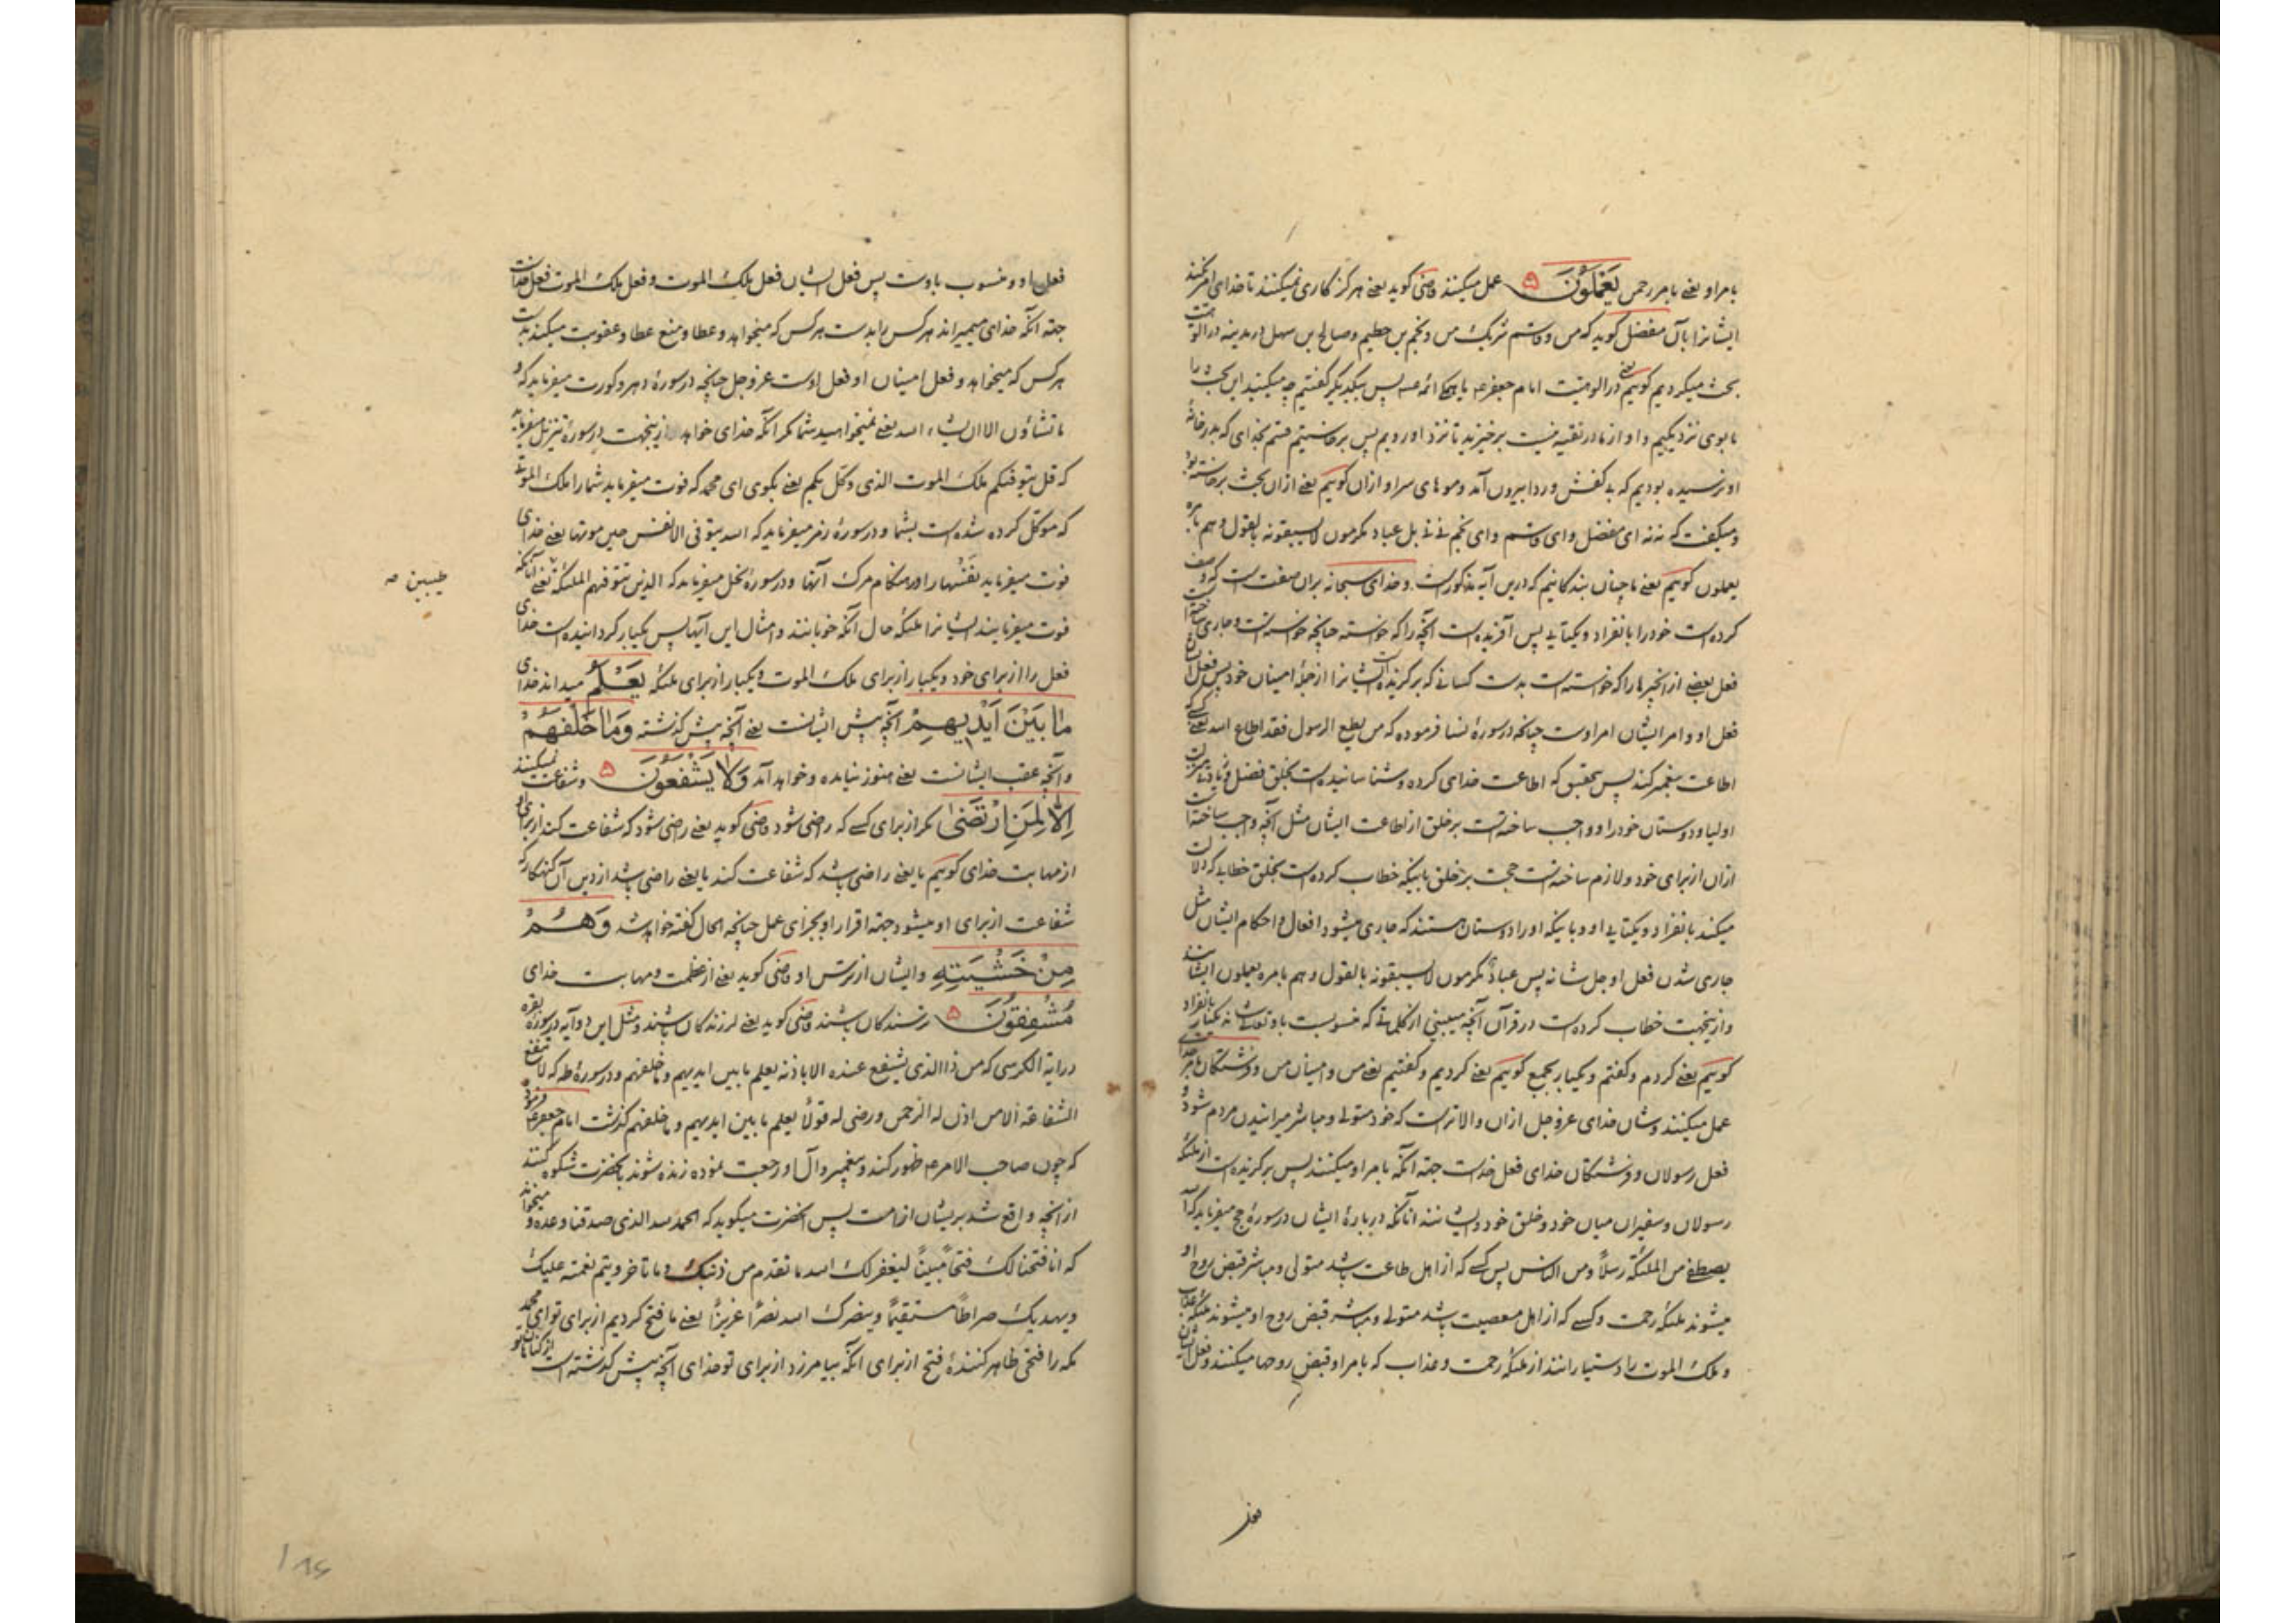 بامر او یعنی بامر رحمن یَعْمَلُونَ ۵ عمل میکنند قاضی کوید یعنی هرکز کاری نمیکنند تا خدای امر نکند
ایشانرا بآن مفضل کوید که من و قاسم شریک من و نجم بن حطیم و صالح بن سهل در مدینه در الوهیت
بحث میکردیم کوییم یعنی در الوهیت امام جعفر ع یا همه ائمه ع پس بیکدیکر کفتیم چه میکنید این بحث را
ما بوی نزدیکیم و او از ما در تقیه نیست برخیزید تا نزد او رویم پس برخاستیم قسم بخدای که بدر خانه
او نرسیده بودیم که بی کفش و ردا بیرون آمد و موهای سر او ازان کوییم یعنی ازان بحث برخاسته بود
و میکفت که نه نه ای مفضل و ای قاسم و ای نجم نی نی بل عباد مکرمون لا یسبقونه بالقول و هم بامره
یعملون کوییم یعنی ما چنان بندکانیم که درین آیه مذکورست و خدای سبحانه بران صفت است که وصف
کرده است خود را بانفراد و یکتایی پس آفریده است آنچه را که خواسته چنانچه خواسته است و جاری ساخته است
فعل بعضی از انچیزها را که خواسته است بدست کسانی که برکزیده است ایشانرا از جمله امینان خود پس فعل ایشان
فعل او و امر ایشان امر اوست چنانچه در سورهٔ نسا فرموده که من یطع الرسول فقد اطاع الله یعنی کسی که
اطاعت پیغمبر کند پس بتحقیق که اطاعت خدای کرده و شناسانیده است بخلق فضل و
اولیا و دوستان خود را و واجب ساخته است بر خلق از اطاعت ایشان مثل آنچه واجب ساخته است
ازان از برای خود و لازم ساخته است حجت بر خلق باینکه خطاب کرده است بخلق خطابی که دلالت
میکند بانفراد و یکتایی او و باینکه او را دوستان هستند که جاری میشود افعال و احکام ایشان مثل
جاری شدن فعل او جل شانه پس عباد مکرمون لا یسبقونه بالقول و هم بامره یعملون ایشانند
و ازینجهت خطاب کرده است در قرآن آنچه میبینی از کلماتی که منسوبست باو تعالی شانه یکبار بانفراد
کوییم یعنی کردم و کفتم و یکبار بجمع کوییم یعنی کردیم و کفتیم یعنی من و امینان من و فرشتکان بامر خدای
عمل میکنند و شان خدای عزوجل ازان والاترست که خود متولی و مباشر میرانیدن مردم شود و
فعل رسولان و فرشتکان خدای فعل خداست جهة آنکه بامر او میکنند پس برکزیده است از ملئکه
رسولان و سفیران میان خود و خلق خود و ایشانند آنانکه دربارهٔ ایشان در سورهٔ حج میفرماید که الله
یصطفی من الملئکة رسلا ومن الناس پس کسی که از اهل طاعت باشد متولی و مباشر قبض روح او
میشوند ملئکه رحمت و کسی که از اهل معصیت باشد متولی و مباشر قبض روح او میشوند ملئکه عذاب
و ملک الموت را دستیارانند از ملئکه رحمت و عذاب که بامر او قبض روحها میکنند و فعل ایشان
فعل
فعل او و منسوب باوست پس فعل ایشان فعل ملک الموت و فعل ملک الموت فعل خداست
جهة آنکه خدای میمیراند هرکس را بدست هرکس که میخواهد و عطا و منع عطا و عقوبت میکند بدست
هرکس که میخواهد و فعل امینان او فعل اوست عزوجل چنانچه در سورهٔ دهر و کورت میفرماید که و
ما تشاؤن الا ان یشاء الله یعنی نمیخواهید شما مکر آنکه خدای خواهد ازینجهت در سورهٔ تنزیل میفرماید
که قل یتوفیکم ملک الموت الذی وکل بکم یعنی بکوی ای محمد که فوت میفرماید شما را ملک الموت
که موکل کرده شده است بشما و در سورهٔ زمر میفرماید که الله یتوفی الانفس حین موتها یعنی خدای
فوت میفرماید نفسها را در هنکام مرک آنها و در سورهٔ نحل میفرماید که الذین تتوفیهم الملئکة یعنی آنانکه
طیبین صه
فوت میفرمایند ایشانرا ملئکه حال آنکه خوبانند و امثال این آیتها پس یکبار کردانیده است خدای
فعل را از برای خود و یکبار از برای ملک الموت و یکبار از برای ملئکه یَعْلَمُ میداند خدای
مَا بَیْنَ اَیْدِیهِمْ آنچه پیش ایشانست یعنی آنچه پیش کذشته وَمَا خَلْفَهُمْ
و آنچه عقب ایشانست یعنی هنوز نیامده و خواهد آمد وَلَا یَشْفَعُونَ ۵ و شفاعت نمیکنند
اِلَّا لِمَنِ ارْتَضٰی مکر از برای کسی که راضی شود قاضی کوید یعنی راضی شود که شفاعت کنند از برای او
از مهابت خدای کوییم یا یعنی راضی باشد که شفاعت کند یا یعنی راضی باشد از دین آن کنهکار که
شفاعت از برای او میشود جهة اقرار او بجزای عمل چنانچه الحال کفته خواهد شد وَهُمْ
مِنْ خَشْیَتِهِ و ایشان از ترس او قاضی کوید یعنی از عظمت و مهابت خدای
مُشْفِقُونَ ۵ ترسندکان باشند قاضی کوید یعنی لرزندکان باشند و مثل این دو آیه در سورهٔ بقره
در آیة الکرسی که من ذا الذی یشفع عنده الا باذنه یعلم ما بین ایدیهم و ما خلفهم و در سورهٔ طه که لا تنفع
الشفاعة الا من اذن له الرحمن و رضی له قولا یعلم ما بین ایدیهم و ما خلفهم کذشت امام جعفر ع فرمود
که چون صاحب الامر ع ظهور کند و پیغمبر و آل او رجعت نموده زنده شوند بآنحضرت شکوه کنند
از آنچه واقع شد بر ایشان از امت پس آنحضرت میکوید که الحمد لله الذی صدقنا وعده و میخواند
که انا فتحنا لک فتحا مبینا لیغفر لک الله ما تقدم من ذنبک و ما تاخر و یتم نعمته علیک
و یهدیک صراطا مستقیما و ینصرک الله نصرا عزیزا یعنی ما فتح کردیم از برای تو ای محمد
مکه را فتحی ظاهر کنندهٔ فتح از برای آنکه بیامرزد از برای تو خدای آنچه پیش کذشته است از کناهان تو
۱۸۶